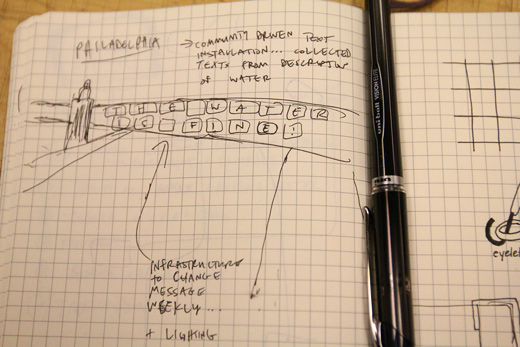 PHILADELPHIA
→ COMMUNITY DRIVEN TEXT
INSTALLATION... COLLECTED
TEXTS FROM DESCRIPTION
OF WATER
THE WATER
IS FINE!
INFRASTRUCTURE
to CHANGE
MESSAGE
WEEKLY...
+ LIGHTING
uni-ball VISION ELITE
eyelet